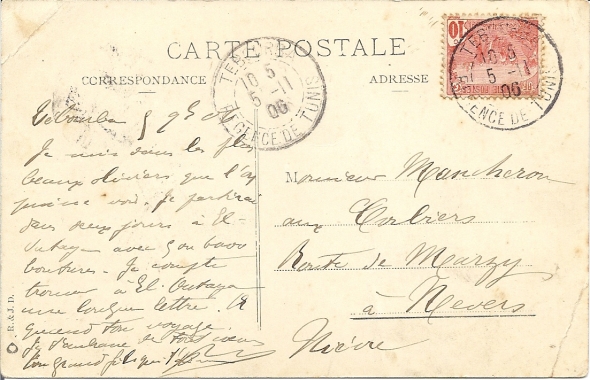 CARTE POSTALE
CORRESPONDANCE
ADRESSE
10
TEBOURBA
10 5
5 -11
06
REGENCE DE TUNIS
TEBOURBA
10 5
5 -11
06
REGENCE DE TUNIS
Tebourba 5 9bre
Je suis dans les plus
beaux oliviers que l'on
puisse voir. Je partirai
dans deux jours à El-
avec
boutures. Je compte
trouver à El-
une longue lettre.
quand ton voyage.
Je t'embrasse de tout coeur
Ton grand fils qui t'
Monsieur Mancheron
aux Corbiers
Route de Marzy
à Nevers
Nièvre
R. & J. D.